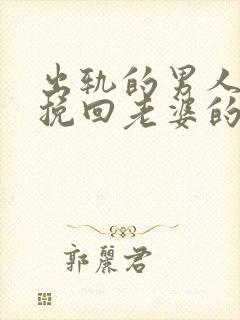 出轨的男人
挽回老婆的
郭麗君